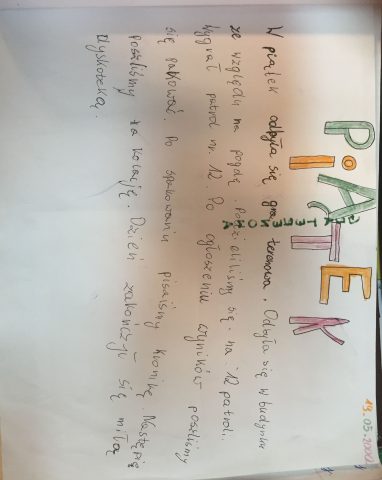 PIĄTEK
W piątek odbyła się gra terenowa. Odbyła się w budynku
ze względu na pogodę. Podzieliliśmy się na 12 patroli.
Wygrał patrol nr 12. Po ogłoszeniu wyników poszliśmy
się pakować. Po spakowaniu pisaliśmy kronikę. Następnie
poszliśmy na kolację. Dzień zakończył się miłą
dyskoteką.